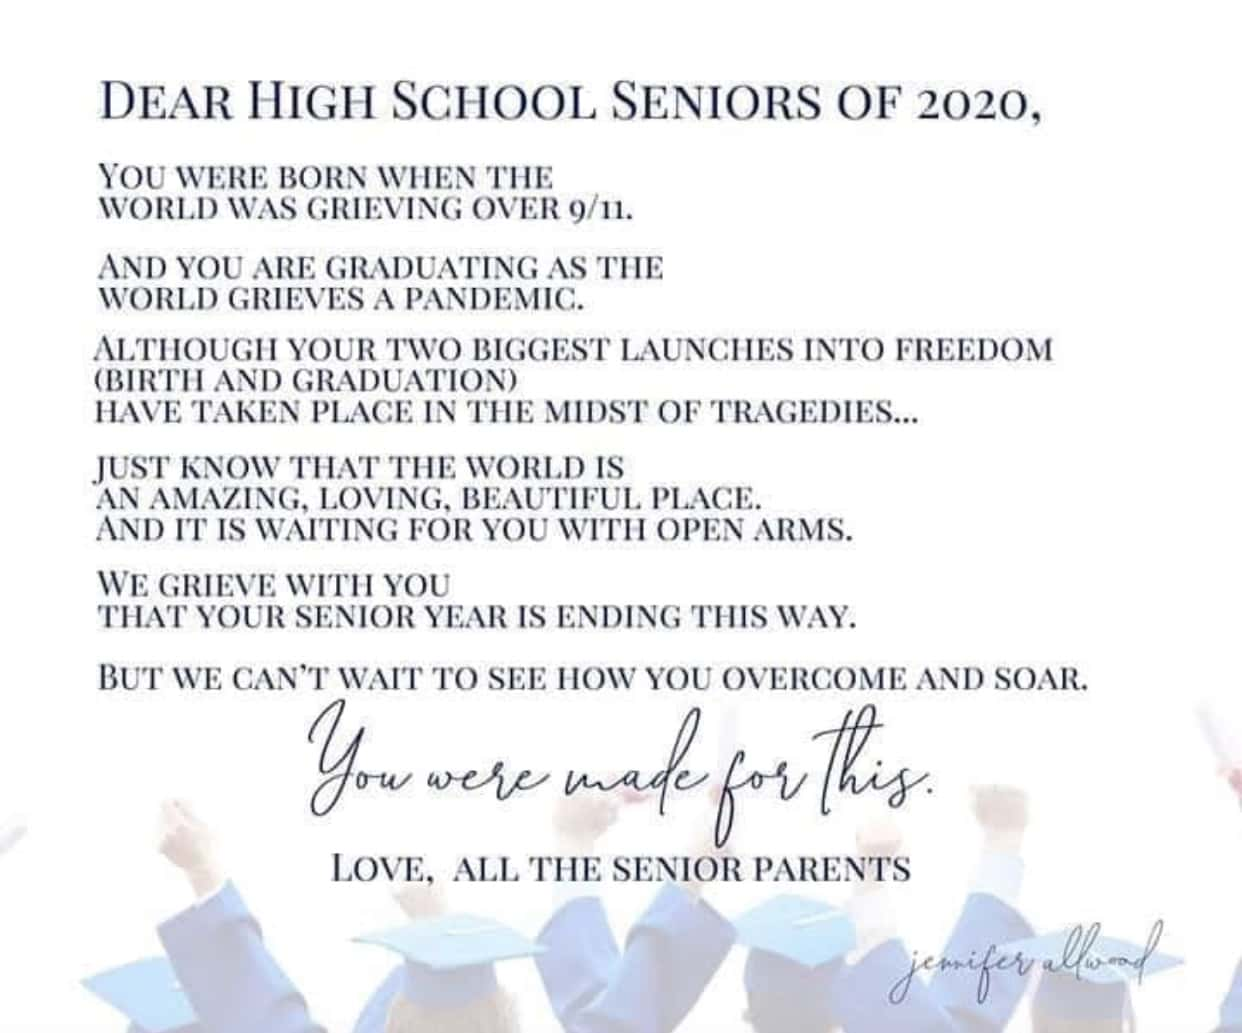 Dear High School Seniors of 2020,
You were born when the
world was grieving over 9/11.
And you are graduating as the
world grieves a pandemic.
Although your two biggest launches into freedom
(birth and graduation)
have taken place in the midst of tragedies...
just know that the world is
an amazing, loving, beautiful place.
And it is waiting for you with open arms.
We grieve with you
that your senior year is ending this way.
But we can't wait to see how you overcome and soar.
You were made for this.
Love, all the senior parents
jennifer allwood